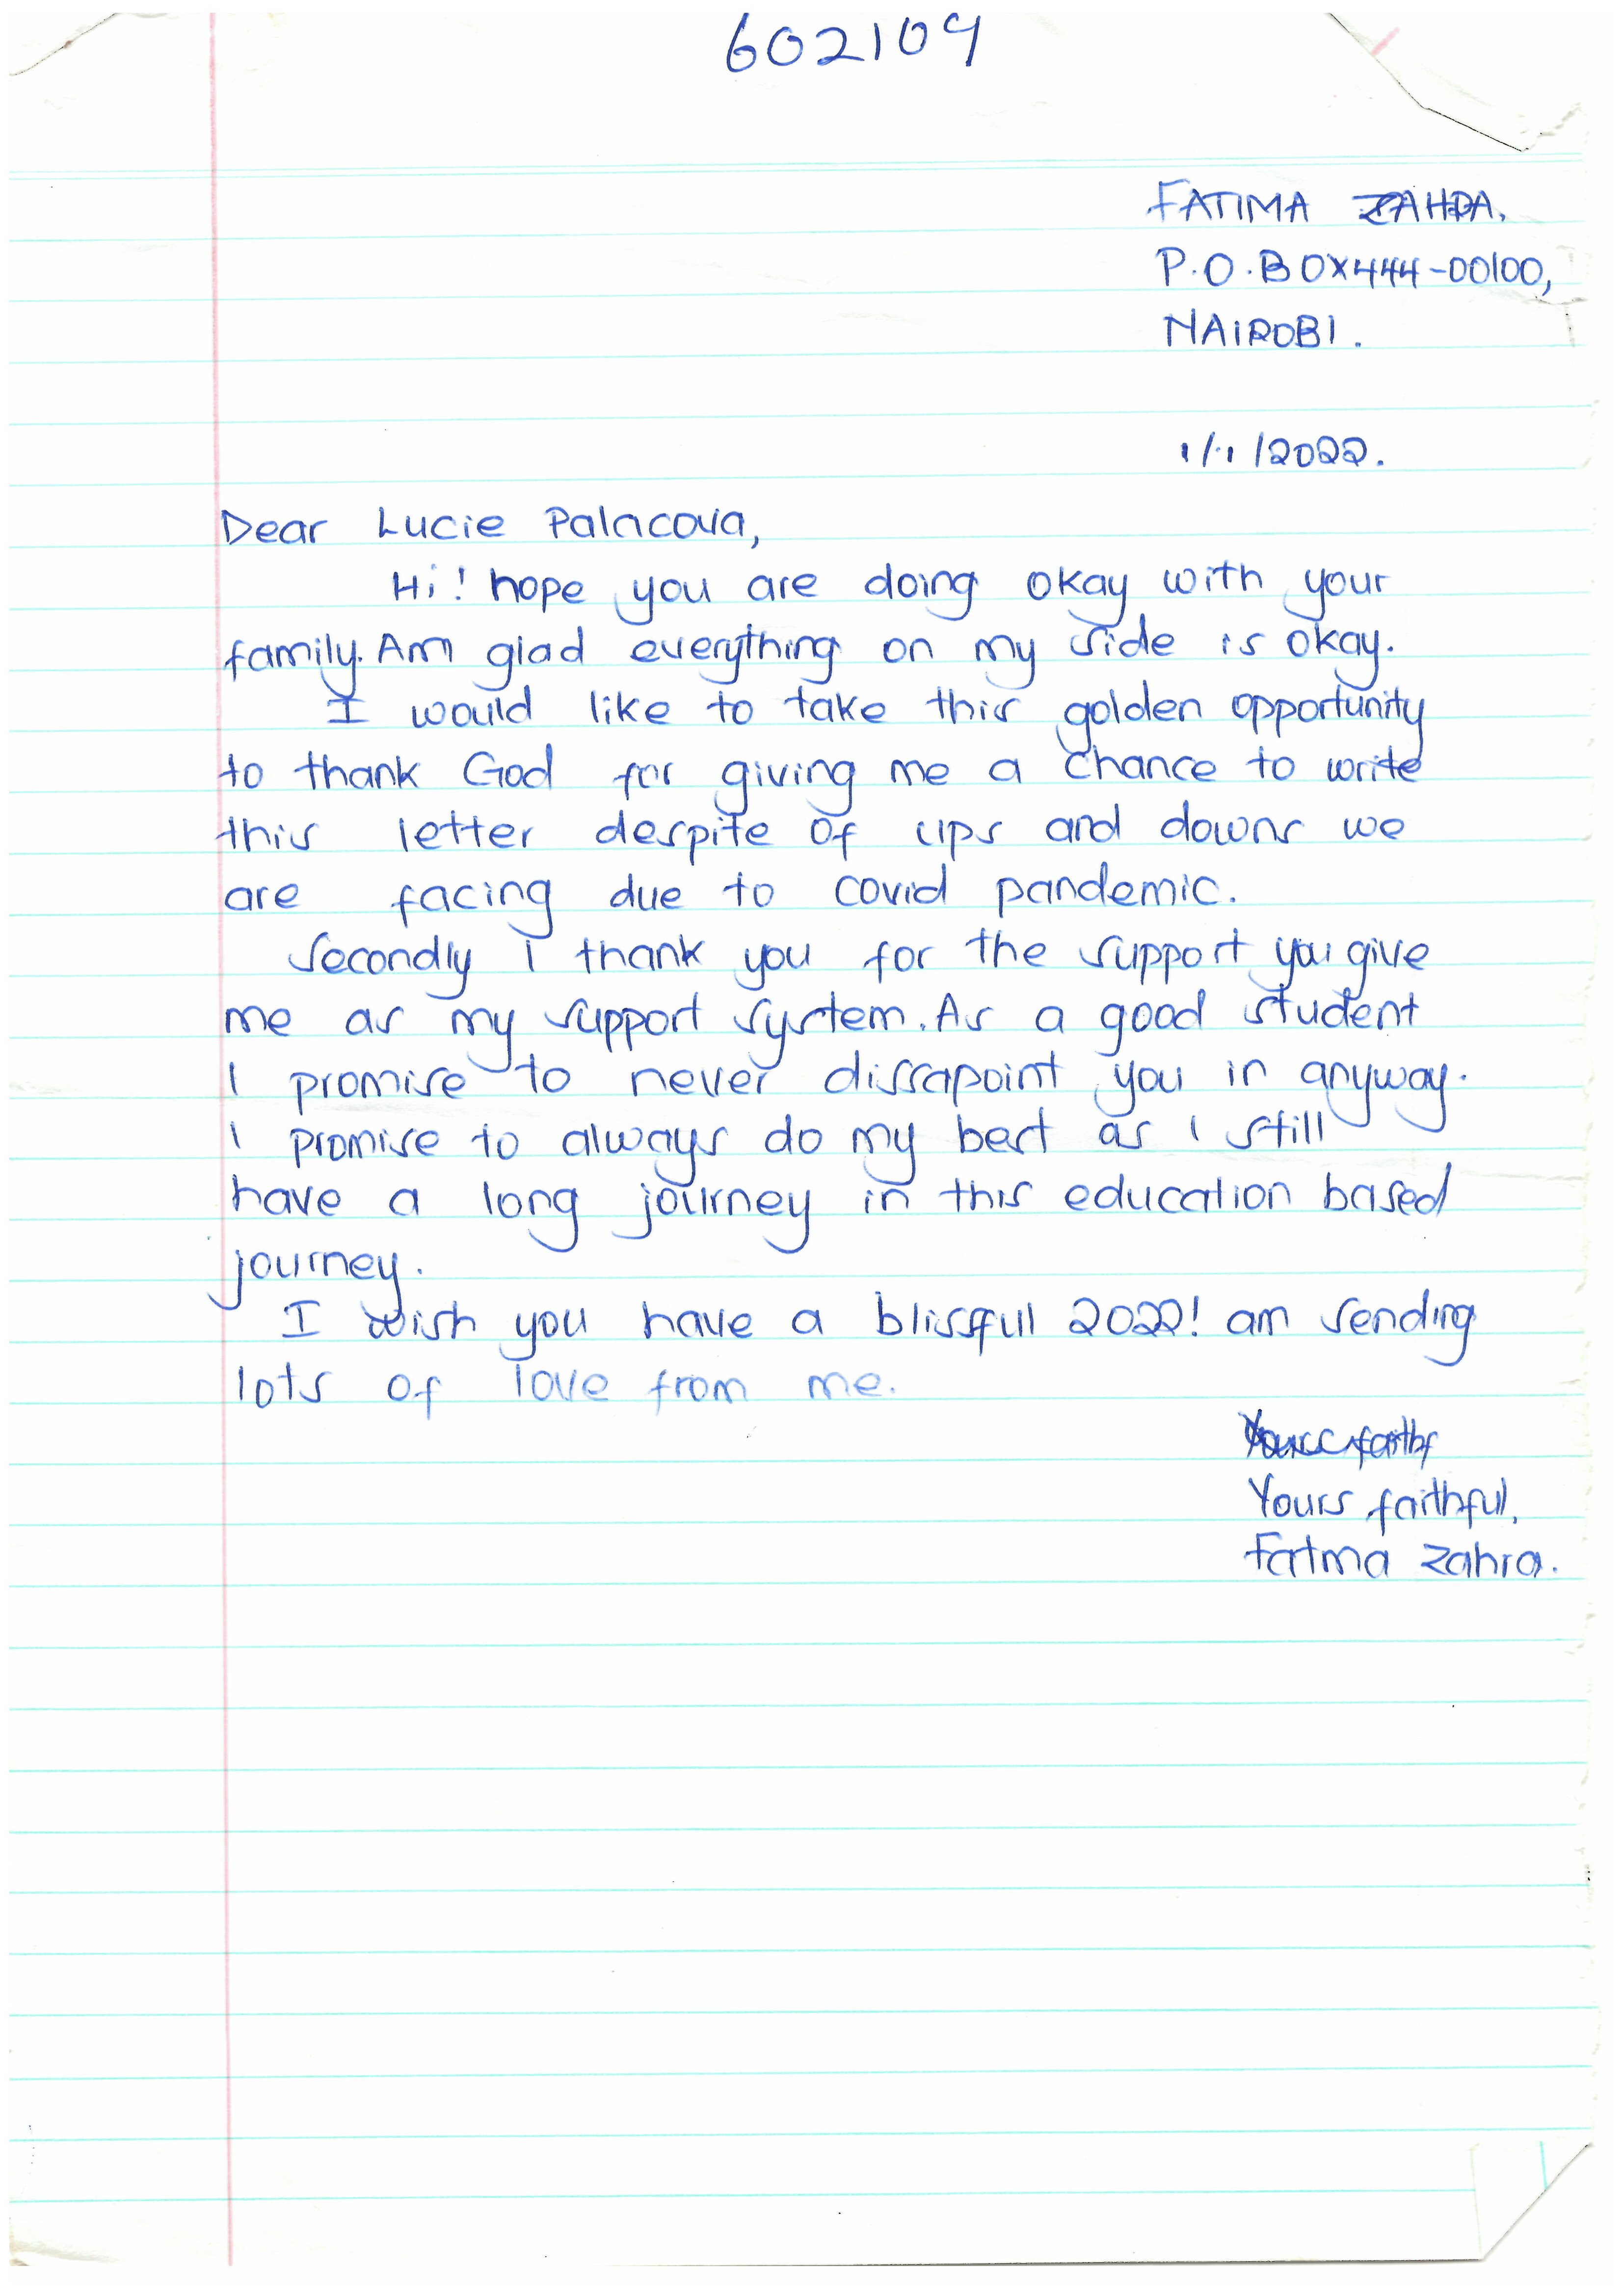 602109
FATIMA ZAHRA,
P.O.BOX444-00100,
NAIROBI.
1/1/2022.
Dear Lucie Palacova,
Hi! hope you are doing okay with your
family. Am glad everything on my side is okay.
I would like to take this golden opportunity
to thank God for giving me a chance to write
this letter despite of ups and downs we
are facing due to covid pandemic.
Secondly I thank you for the support you give
me as my support system. As a good student
I promise to never dissapoint you in anyway.
I promise to always do my best as I still
have a long journey in this education based
journey.
I wish you have a blissful 2022! am sending
lots of love from me.
Yours faithful,
Fatma Zahra.